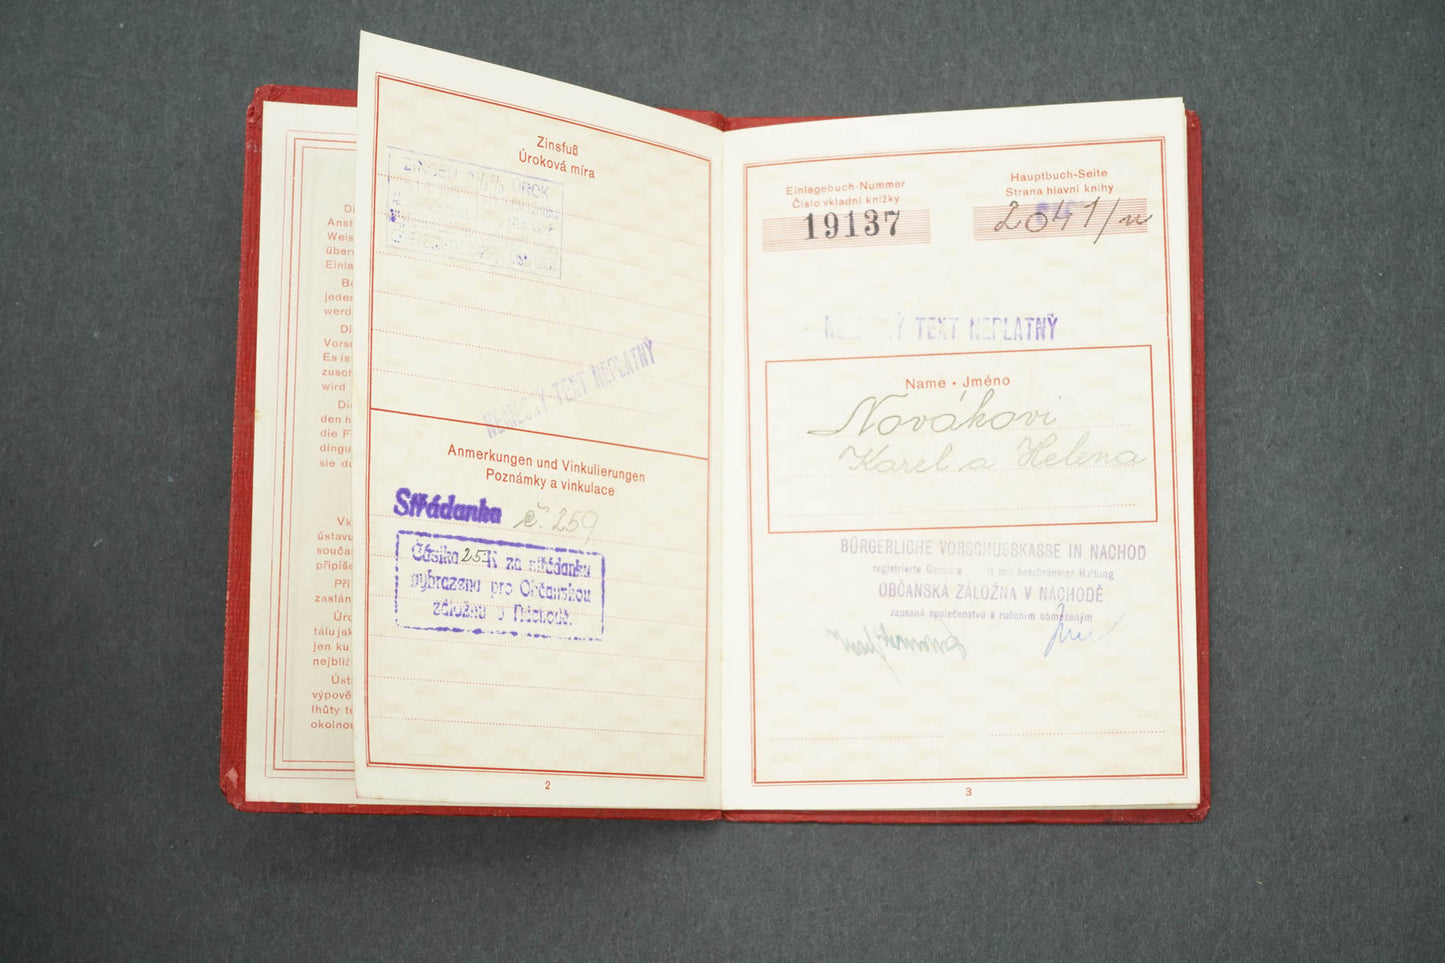 Di
Anst
Weis
überv
Einla
Be
jeder
werde
Di
Vors
Es is
zusch
wird
Di
den h
die F
dingu
sie du
Vk
ústavu
součas
připíše
Při
zaslán
Úro
tálu jak
jen ku
nejbliž
Úst
výpově
lhůty te
okolnos
Zinsfuß
Úroková míra
ÚROK
NĚMECKÝ TEXT NEPLATNÝ
Anmerkungen und Vinkulierungen
Poznámky a vinkulace
Střádanka č. 259
Částka 25 K za střádanku
vyhrazena pro Občanskou
záložnu v Náchodě.
2
Einlagebuch-Nummer
Číslo vkladní knížky
19137
Hauptbuch-Seite
Strana hlavní knihy
2041/
NĚMECKÝ TEXT NEPLATNÝ
Name • Jméno
Novákovi
Karel a Helena
BÜRGERLICHE VORSCHUSSKASSE IN NACHOD
registrierte mit beschränkter Haftung
OBČANSKÁ ZÁLOŽNA V NÁCHODĚ
zapsané společenstvo s ručením obmezeným
3